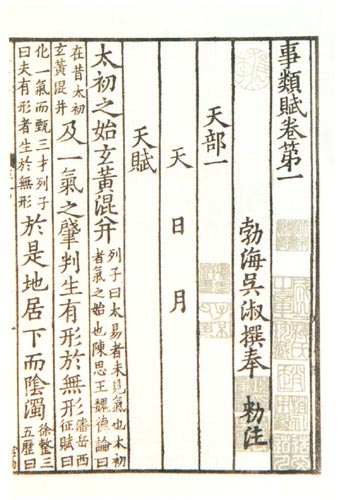 事類賦卷第一
勃海吳淑撰奉 勑注
天部一
天 日 月
天賦
太初之始玄黃混并列子曰太易者未見氣也太初者氣之始也陳思王魏德論曰
在昔太初玄黃混并及一氣之肇判生有形於無形潘岳西征賦曰
化一氣而甄三才列子曰夫有形者生於無形於是地居下而陰濁徐整三五歷曰